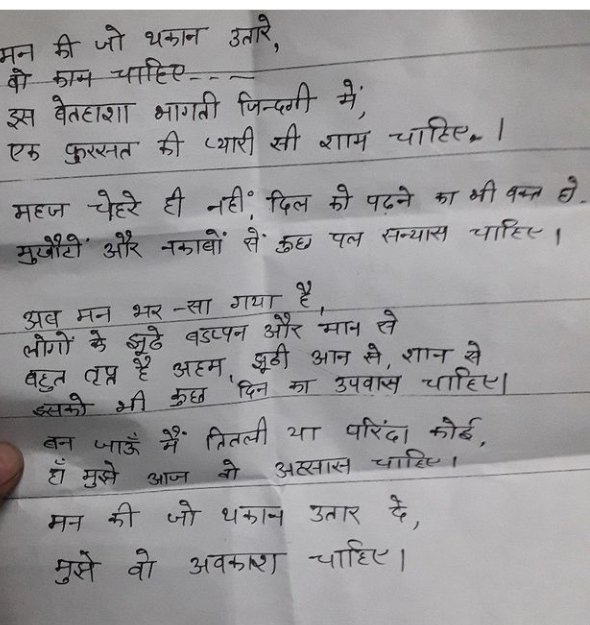 मन की जो थकान उतारे,
वो काम चाहिए----
इस बेतहाशा भागती जिन्दगी में,
एक फुरसत की प्यारी सी शाम चाहिए।
महज चेहरे ही नहीं, दिल को पढ़ने का भी वक्त हो.
मुखौटों और नकाबों से कुछ पल सन्यास चाहिए।
अब मन भर-सा गया है,
लोगों के झूठे बडप्पन और मान से
बहुत तृप्त है अहम, झूठी आन से, शान से
इसको भी कुछ दिन का उपवास चाहिए।
बन जाऊँ मैं तितली या परिंदा कोई,
हाँ मुझे आज वो अहसास चाहिए।
मन की जो थकान उतार दे,
मुझे वो अवकाश चाहिए।